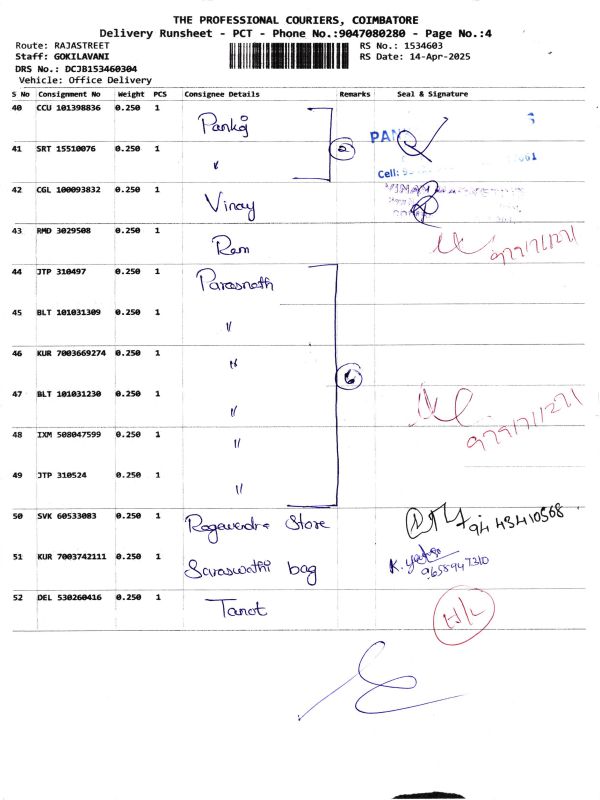 THE PROFESSIONAL COURIERS, COIMBATORE
Delivery Runsheet - PCT - Phone No.:9047080280 - Page No.:4
Route: RAJASTREET RS No.: 1534603
Staff: GOKILAVANI RS Date: 14-Apr-2025
DRS No.: DCJB153460304
Vehicle: Office Delivery
S No Consignment No Weight PCS Consignee Details Remarks Seal & Signature
40 CCU 101398836 0.250 1 Pankaj
41 SRT 15510076 0.250 1 〃 2
Cell:
42 CGL 100093832 0.250 1 Vinay
43 RMD 3029508 0.250 1 Ram
44 JTP 310497 0.250 1 Parasnath
45 BLT 101031309 0.250 1 〃
46 KUR 7003669274 0.250 1 〃 6
47 BLT 101031230 0.250 1 〃
48 IXM 508047599 0.250 1 〃
49 JTP 310524 0.250 1 〃
50 SVK 60533083 0.250 1 Ragavendra Store 9443410568
51 KUR 7003742111 0.250 1 Saraswathi bag
52 DEL 530260416 0.250 1 Tanot